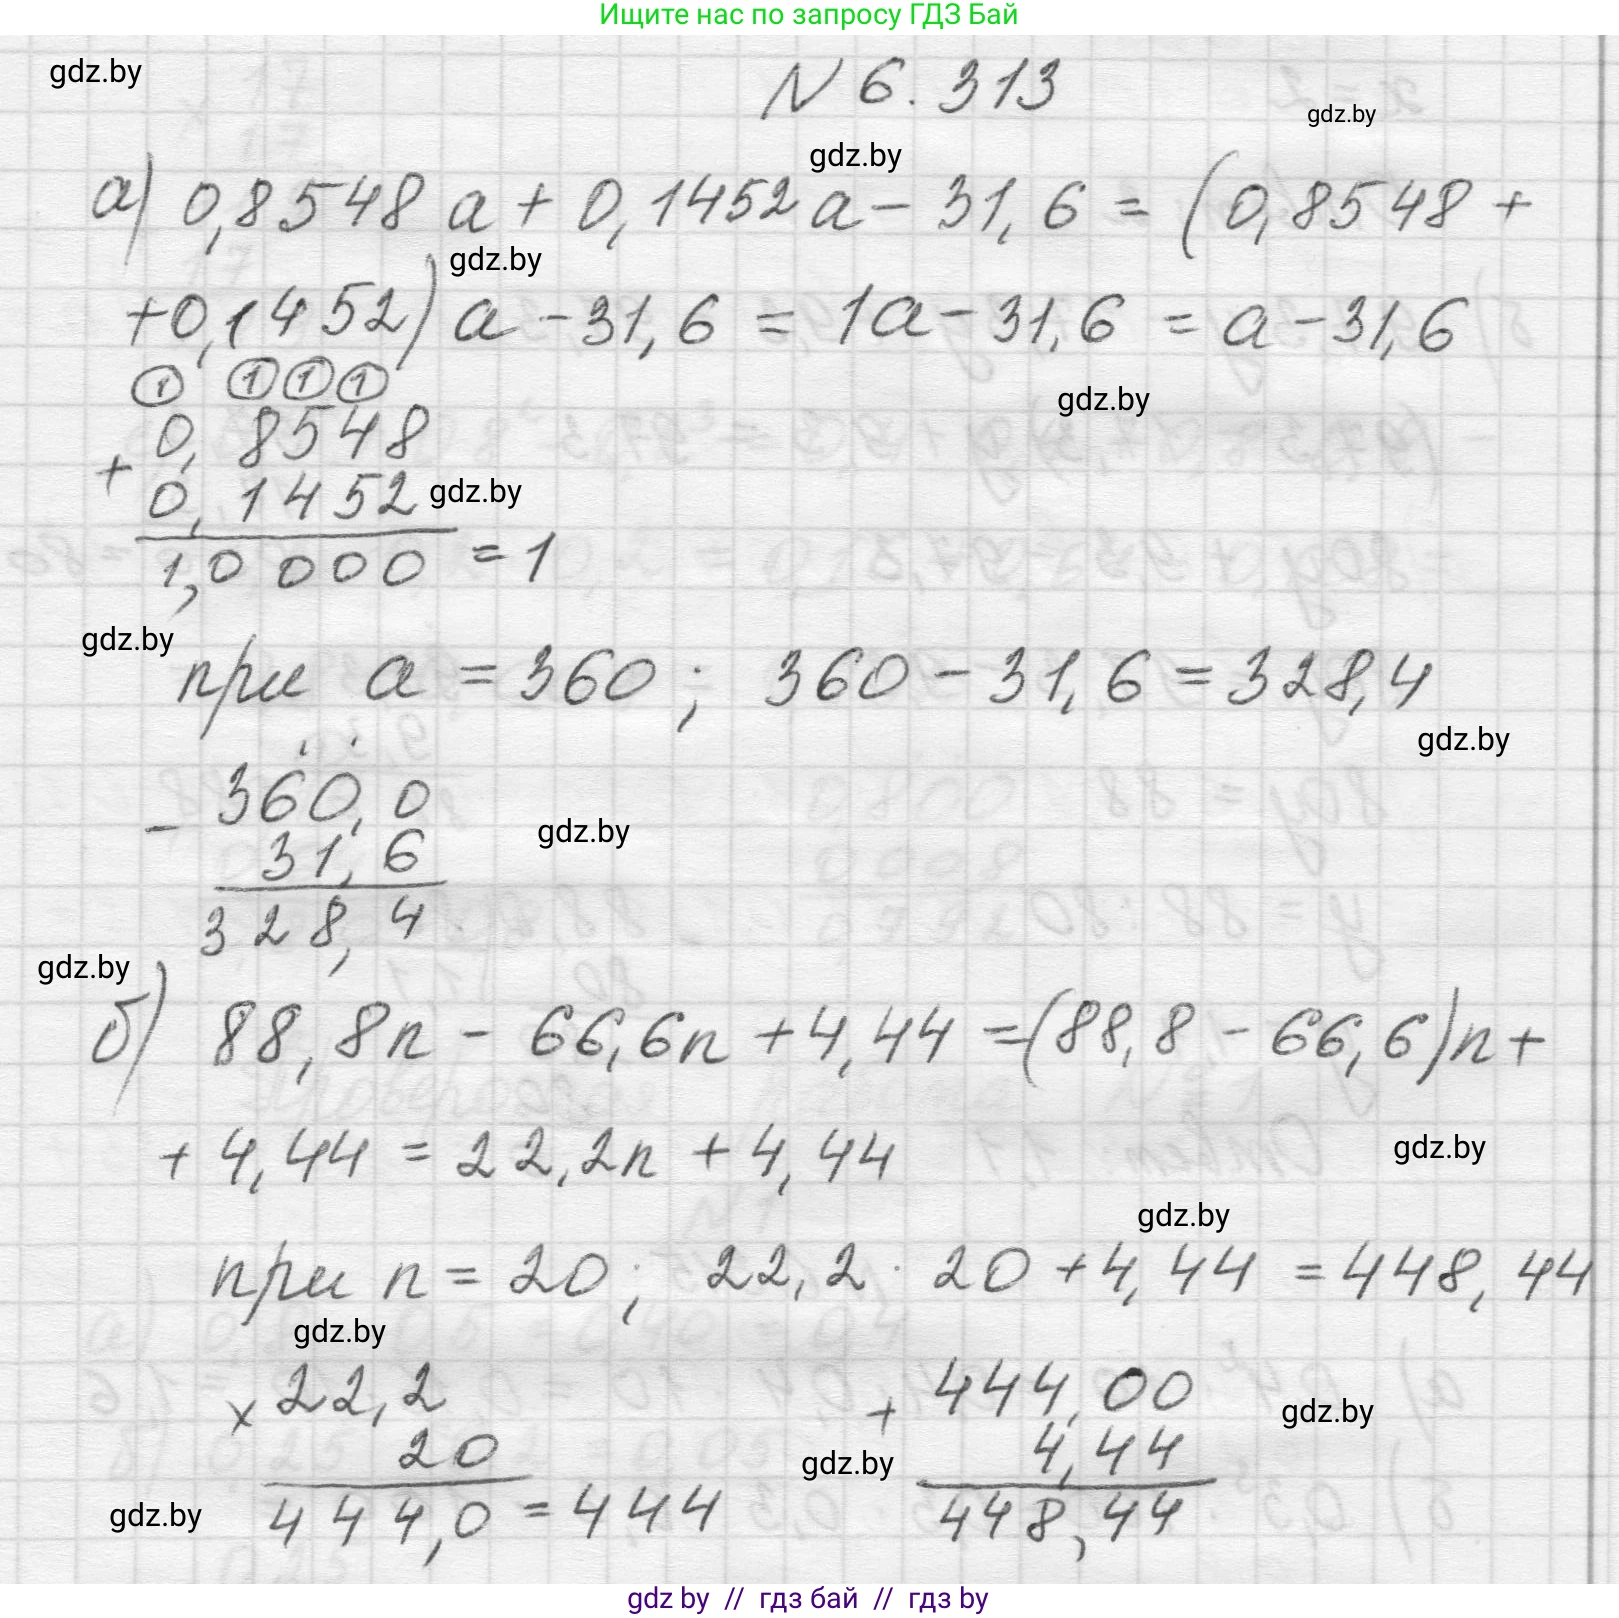 Ищите нас по запросу ГДЗ Бай
gdz.by
N 6.313
gdz.by
gdz.by
а) 0,8548 a + 0,1452 a - 31,6 = (0,8548 +
gdz.by
+0,1452) a - 31,6 = 1a - 31,6 = a - 31,6
gdz.by
1 1 1 1
0,8548
+
0,1452
gdz.by
1,0000 = 1
gdz.by
при a = 360; 360 - 31,6 = 328,4
gdz.by
360,0
-
gdz.by
31,6
328,4
gdz.by
б) 88,8n - 66,6n + 4,44 = (88,8 - 66,6)n +
+ 4,44 = 22,2n + 4,44
gdz.by
gdz.by
при n = 20; 22,2 · 20 + 4,44 = 448,44
gdz.by
× 22,2
20
444,0 = 444
gdz.by
+ 444,00
gdz.by
4,44
gdz.by
448,44
gdz by // гдз бай // гдз by